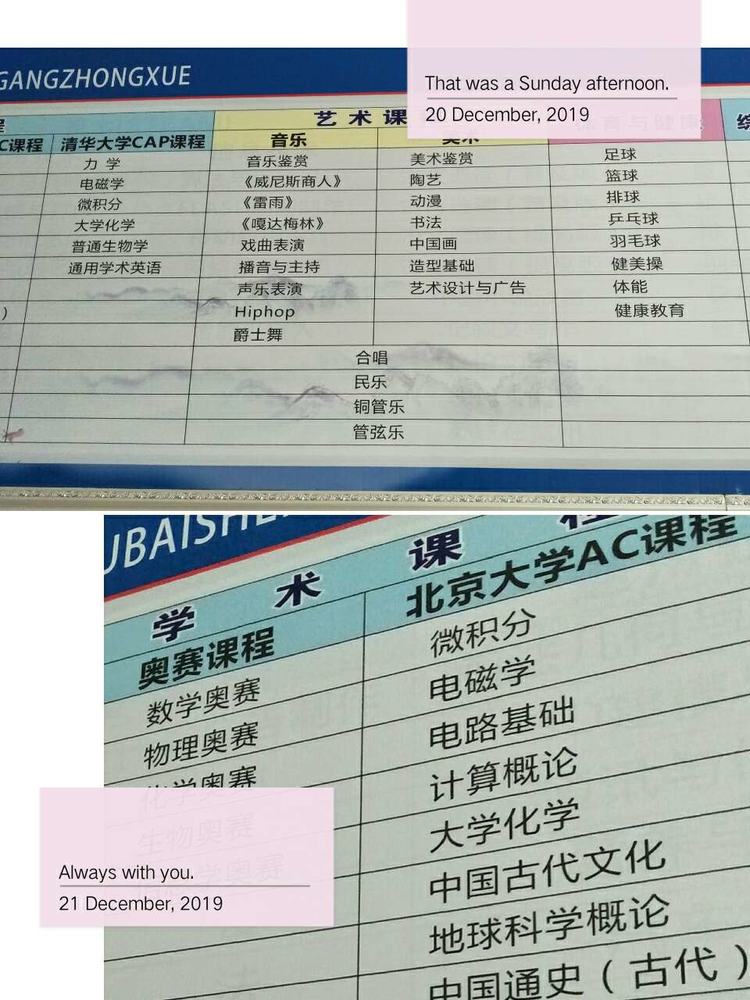 GANGZHONGXUE
That was a Sunday afternoon.
20 December, 2019
程 艺术课 体育与健康 综
C课程 清华大学CAP课程 音乐 美术
力学 音乐鉴赏 美术鉴赏 足球
电磁学 《威尼斯商人》 陶艺 篮球
微积分 《雷雨》 动漫 排球
大学化学 《嘎达梅林》 书法 乒乓球
普通生物学 戏曲表演 中国画 羽毛球
通用学术英语 播音与主持 造型基础 健美操
声乐表演 艺术设计与广告 体能
) Hiphop 健康教育
爵士舞
合唱
民乐
铜管乐
管弦乐
UBAISHE
学术课程
奥赛课程 北京大学AC课程
数学奥赛 微积分
物理奥赛 电磁学
化学奥赛 电路基础
生物奥赛 计算概论
学奥赛 大学化学
中国古代文化
地球科学概论
中国通史(古代)
Always with you.
21 December, 2019